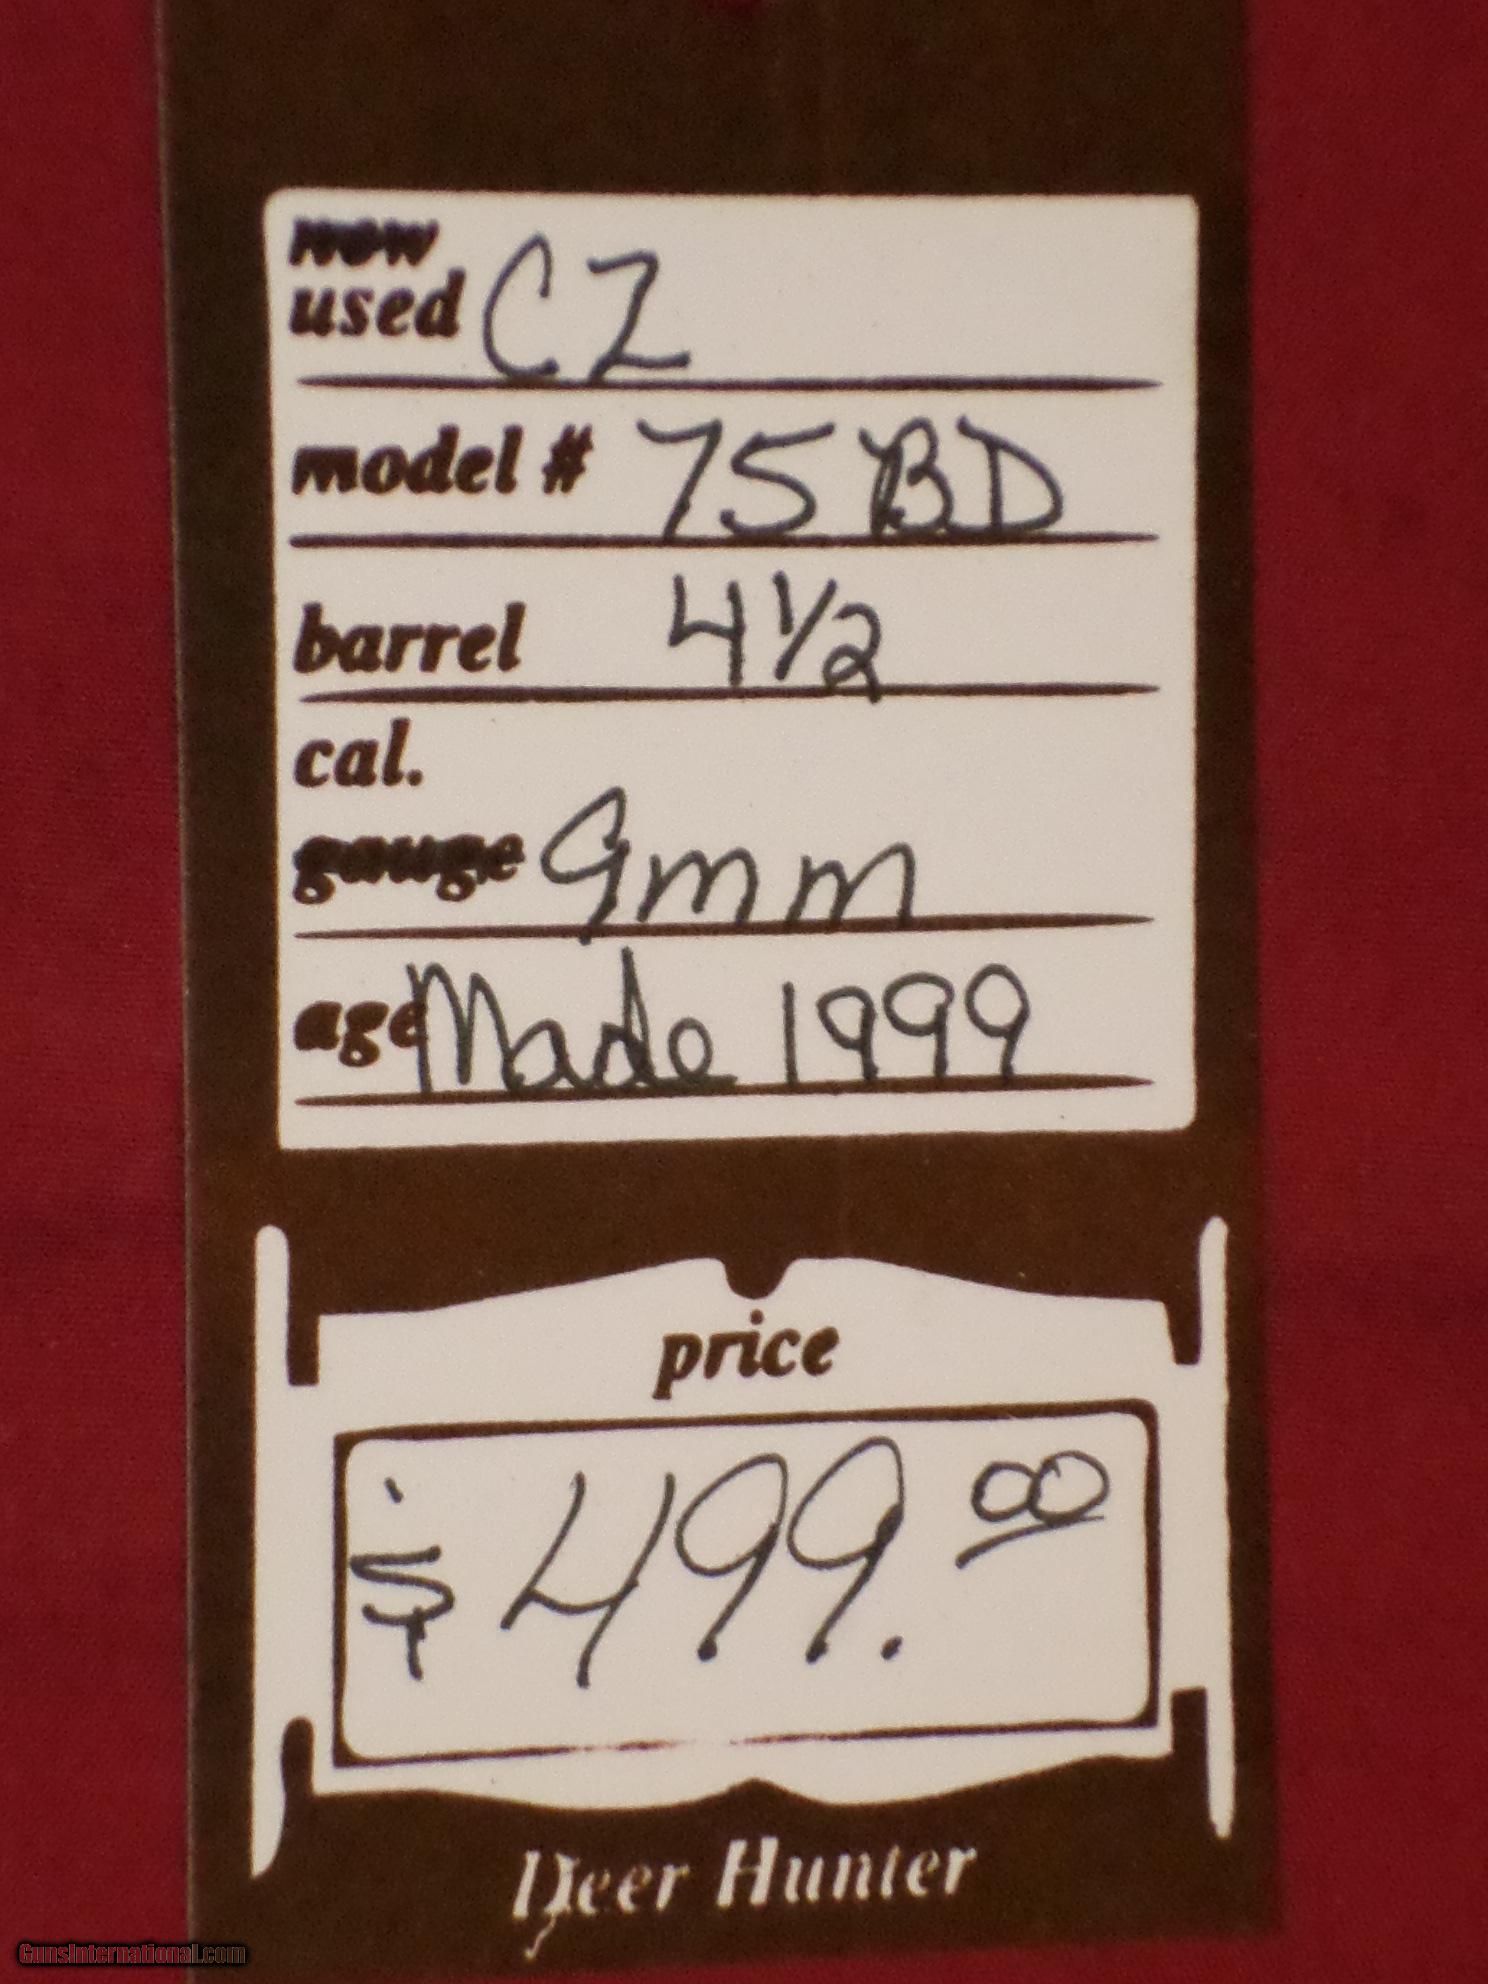 new
used CZ
model # 75 BD
barrel 4 1/2
cal.
gauge 9mm
age Made 1999
price
$ 499.00
Deer Hunter
GunsInternational.com